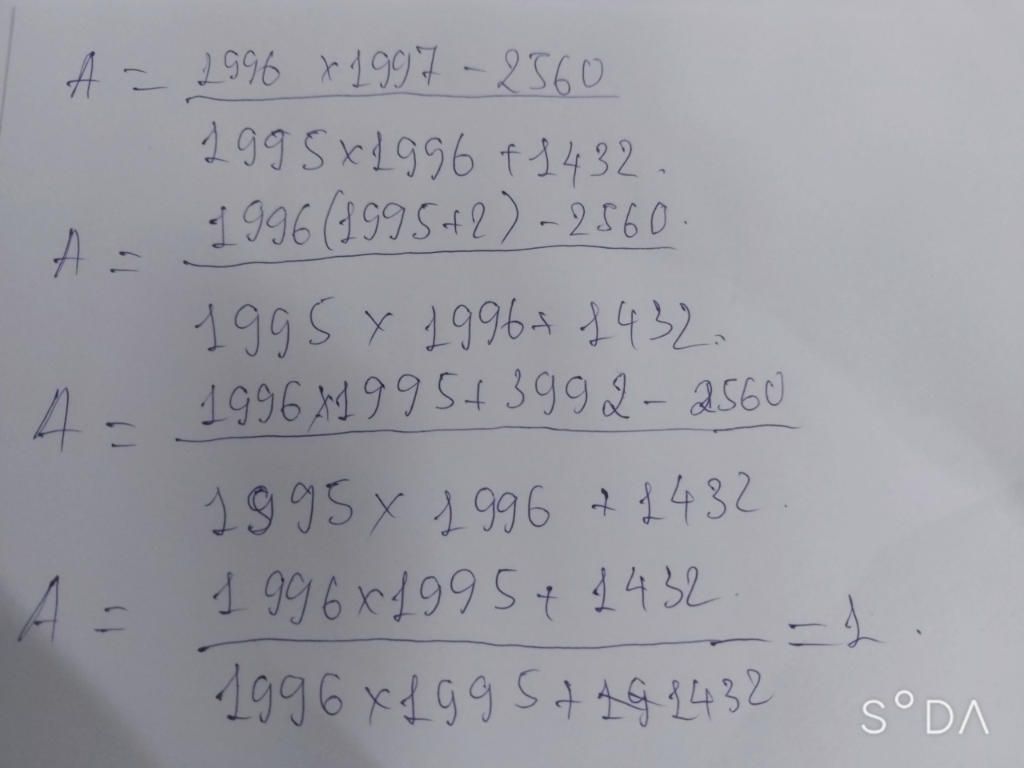 A = 1996 x 1997 - 2560
1995 x 1996 + 1432.
A = 1996(1995+2) - 2560.
1995 x 1996 + 1432.
A = 1996 x 1995 + 3992 - 2560
1995 x 1996 + 1432.
A = 1996 x 1995 + 1432. = 1.
1996 x 1995 + 1432
S°DA